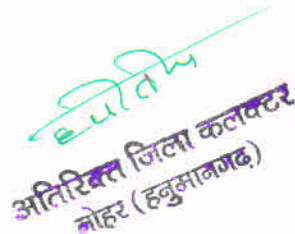 अतिरिक्त जिला कलक्टर
नोहर (हनुमानगढ़)